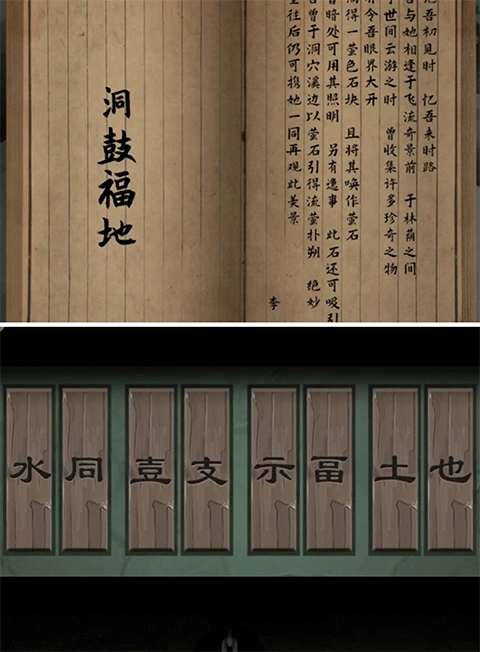 吾初见时 忆吾来时路
与她相逢于飞流奇景前 于林荫之间
世间云游之时 曾收集许多珍奇之物
令吾眼界大开
得一萤色石块 且将其唤作萤石
暗处可用其照明 另有逸事 此石还可吸引
曾于洞穴溪边以萤石引得流萤扑朔 绝妙
往后仍可携她一同再观此美景
李
洞鼓福地
水 同 壴 支 示 畐 土 也